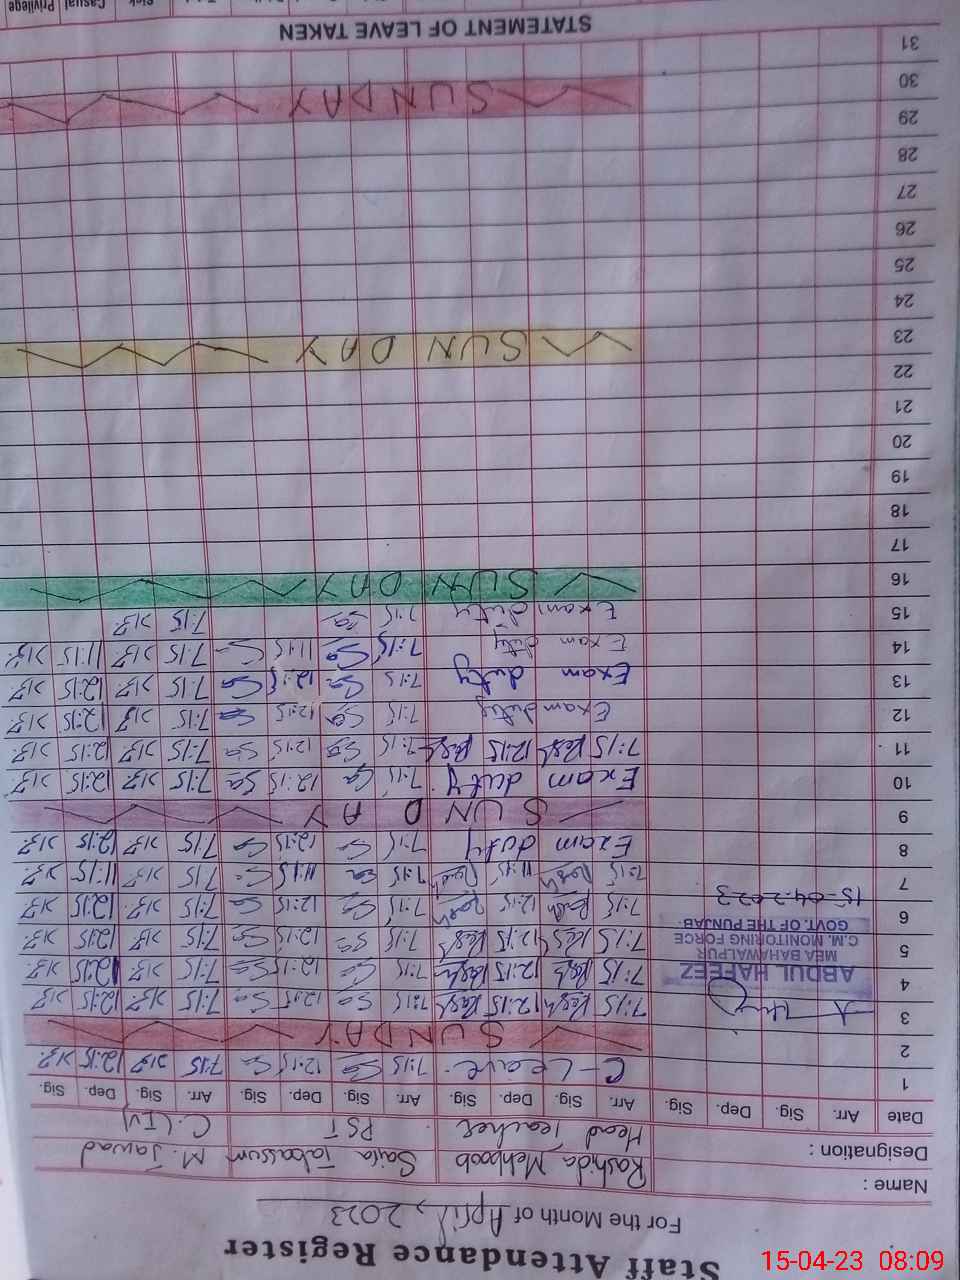 Staff Attendance Register
For the Month of April, 2023
Name : Rashida Mehboob Saira Tabassum M. Jawad
Designation : Head Teacher PST C-(IV)
Date Arr. Sig. Dep. Sig. Arr. Sig. Dep. Sig. Arr. Sig. Dep. Sig. Arr. Sig. Dep. Sig.
1 C-Leave 7:15 Sa 12:15 Sa 7:15 12:15
2 SUNDAY
3 7:15 Rash 12:15 Rash 7:15 Sa 12:15 Sa 7:15 12:15
4 7:15 Rash 12:15 Rash 7:15 Sa 12:15 Sa 7:15 12:15
5 7:15 Rash 12:15 Rash 7:15 Sa 12:15 Sa 7:15 12:15
6 7:15 Rash 12:15 Rash 7:15 Sa 12:15 Sa 7:15 12:15
7 7:15 Rash 11:15 Rash 7:15 Sa 11:15 Sa 7:15 11:15
8 Exam duty 7:15 Sa 12:15 Sa 7:15 12:15
9 SUNDAY
10 Exam duty 7:15 Sa 12:15 Sa 7:15 12:15
11 7:15 Rash 12:15 Rash 7:15 Sa 12:15 Sa 7:15 12:15
12 Exam duty 7:15 Sa 12:15 Sa 7:15 12:15
13 Exam duty 7:15 Sa 12:15 Sa 7:15 12:15
14 Exam duty 7:15 Sa 11:15 Sa 7:15 11:15
15 Exam duty 7:15 Sa 7:15
16 SUNDAY
17
18
19
20
21
22
23 SUNDAY
24
25
26
27
28
29
30 SUNDAY
31
ABDUL HAFEEZ
MEA BAHAWALPUR
C.M. MONITORING FORCE
GOVT. OF THE PUNJAB
15-04-2023
STATEMENT OF LEAVE TAKEN
Sick Casual Privilege
15-04-23 08:09